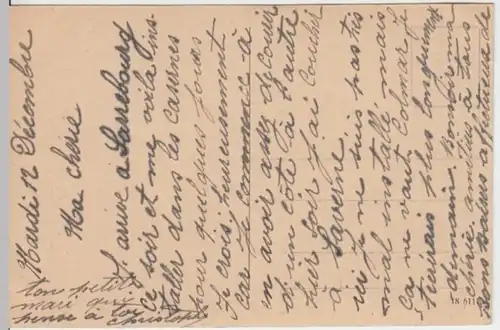 Mardi 12 Décembre
Ma chérie
J'arrive à Sarrebourg
ce soir et me voilà ins-
taller dans les casernes
pour quelques jours
Je crois heureusement
car je commence à
en avoir assez de courir
d'un côté à l'autre
hier soir j'ai coucher
à Saverne
ici je ne suis pas très
mal installé mais
ça ne vaut Colmar je
t'écrirais plus longuement
demain Bonsoir ma
chérie amitiés à tous
bons baisers affectueux de
ton petit
mari qui
pense à toi
Christophe